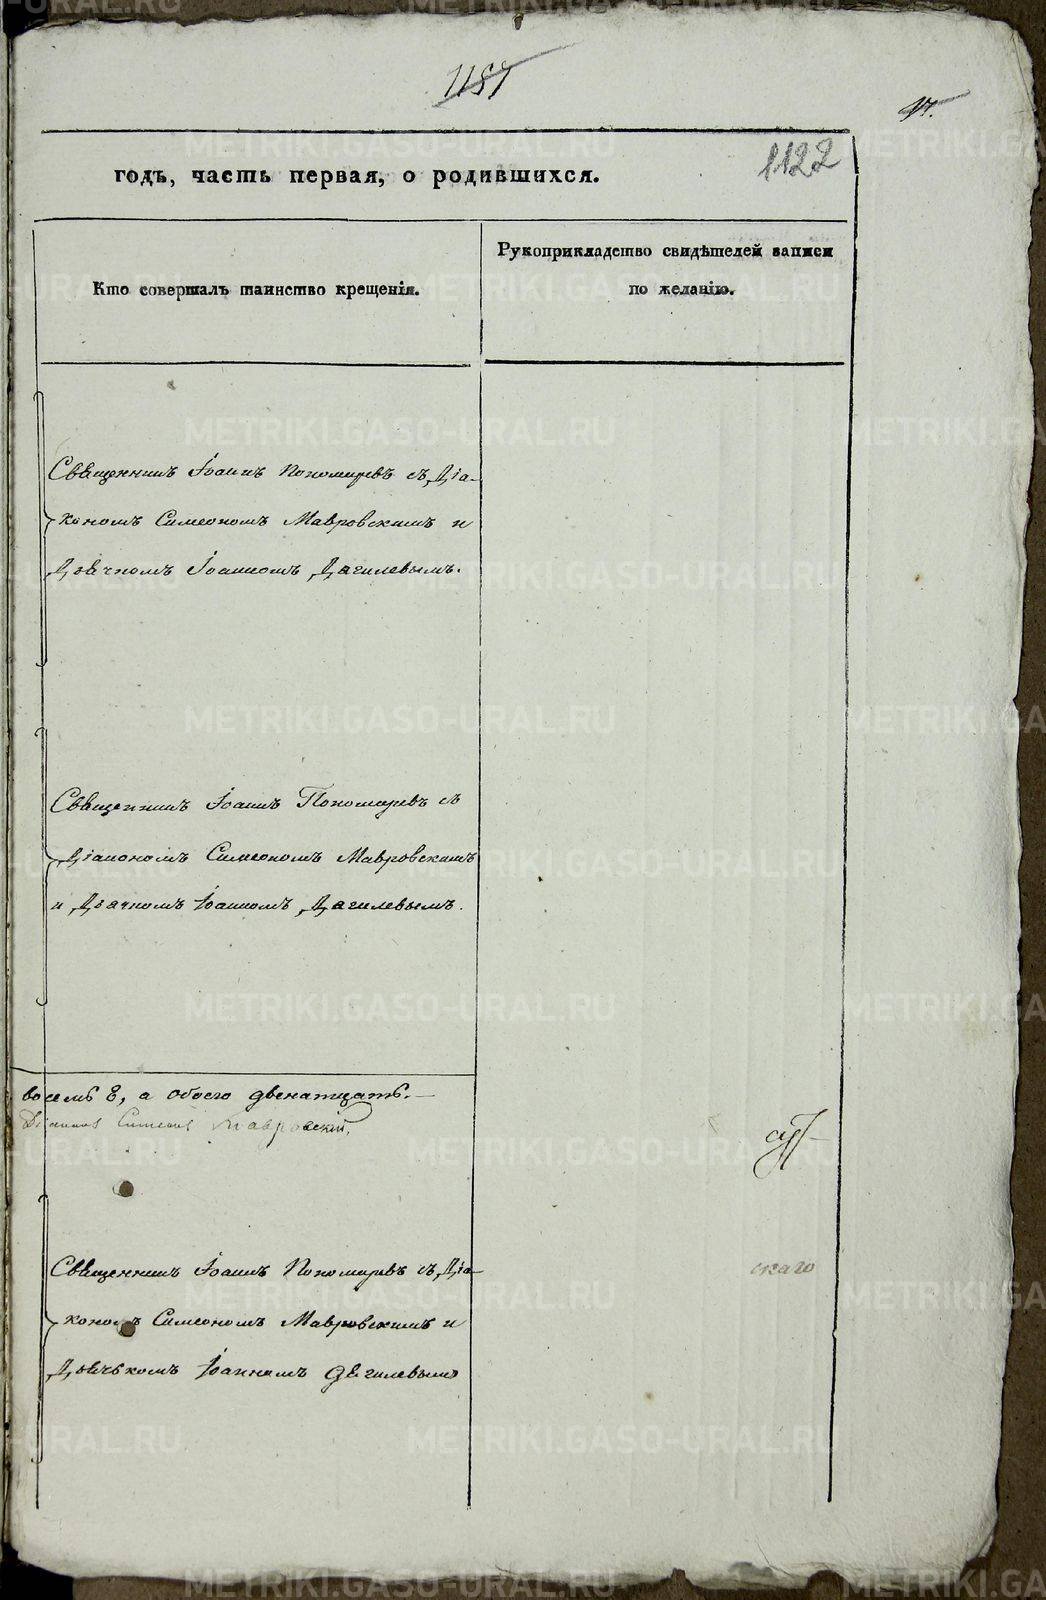 1187
17.
1122
годъ, часть первая, о родившихся.
Кто совершалъ таинство крещенія.
Рукоприкладство свидѣтелей записи
по желанію.
Священникъ Іоаннъ Пономаревъ съ Діа-
кономъ Симеономъ Мавровскимъ и
Дьячкомъ Іоанномъ Дягилевымъ.
Священникъ Іоаннъ Пономаревъ съ
Діакономъ Симеономъ Мавровскимъ
и Дьячкомъ Іоанномъ Дягилевымъ.
восемь 8, а обоего двенатцать.—
Діаконъ Симеонъ Мавровскій,
Священникъ Іоаннъ Пономаревъ съ Діа-
скаго
кономъ Симеономъ Мавровскимъ и
Дьячькомъ Іоанномъ Дягилевымъ
METRIKI.GASO-URAL.RU